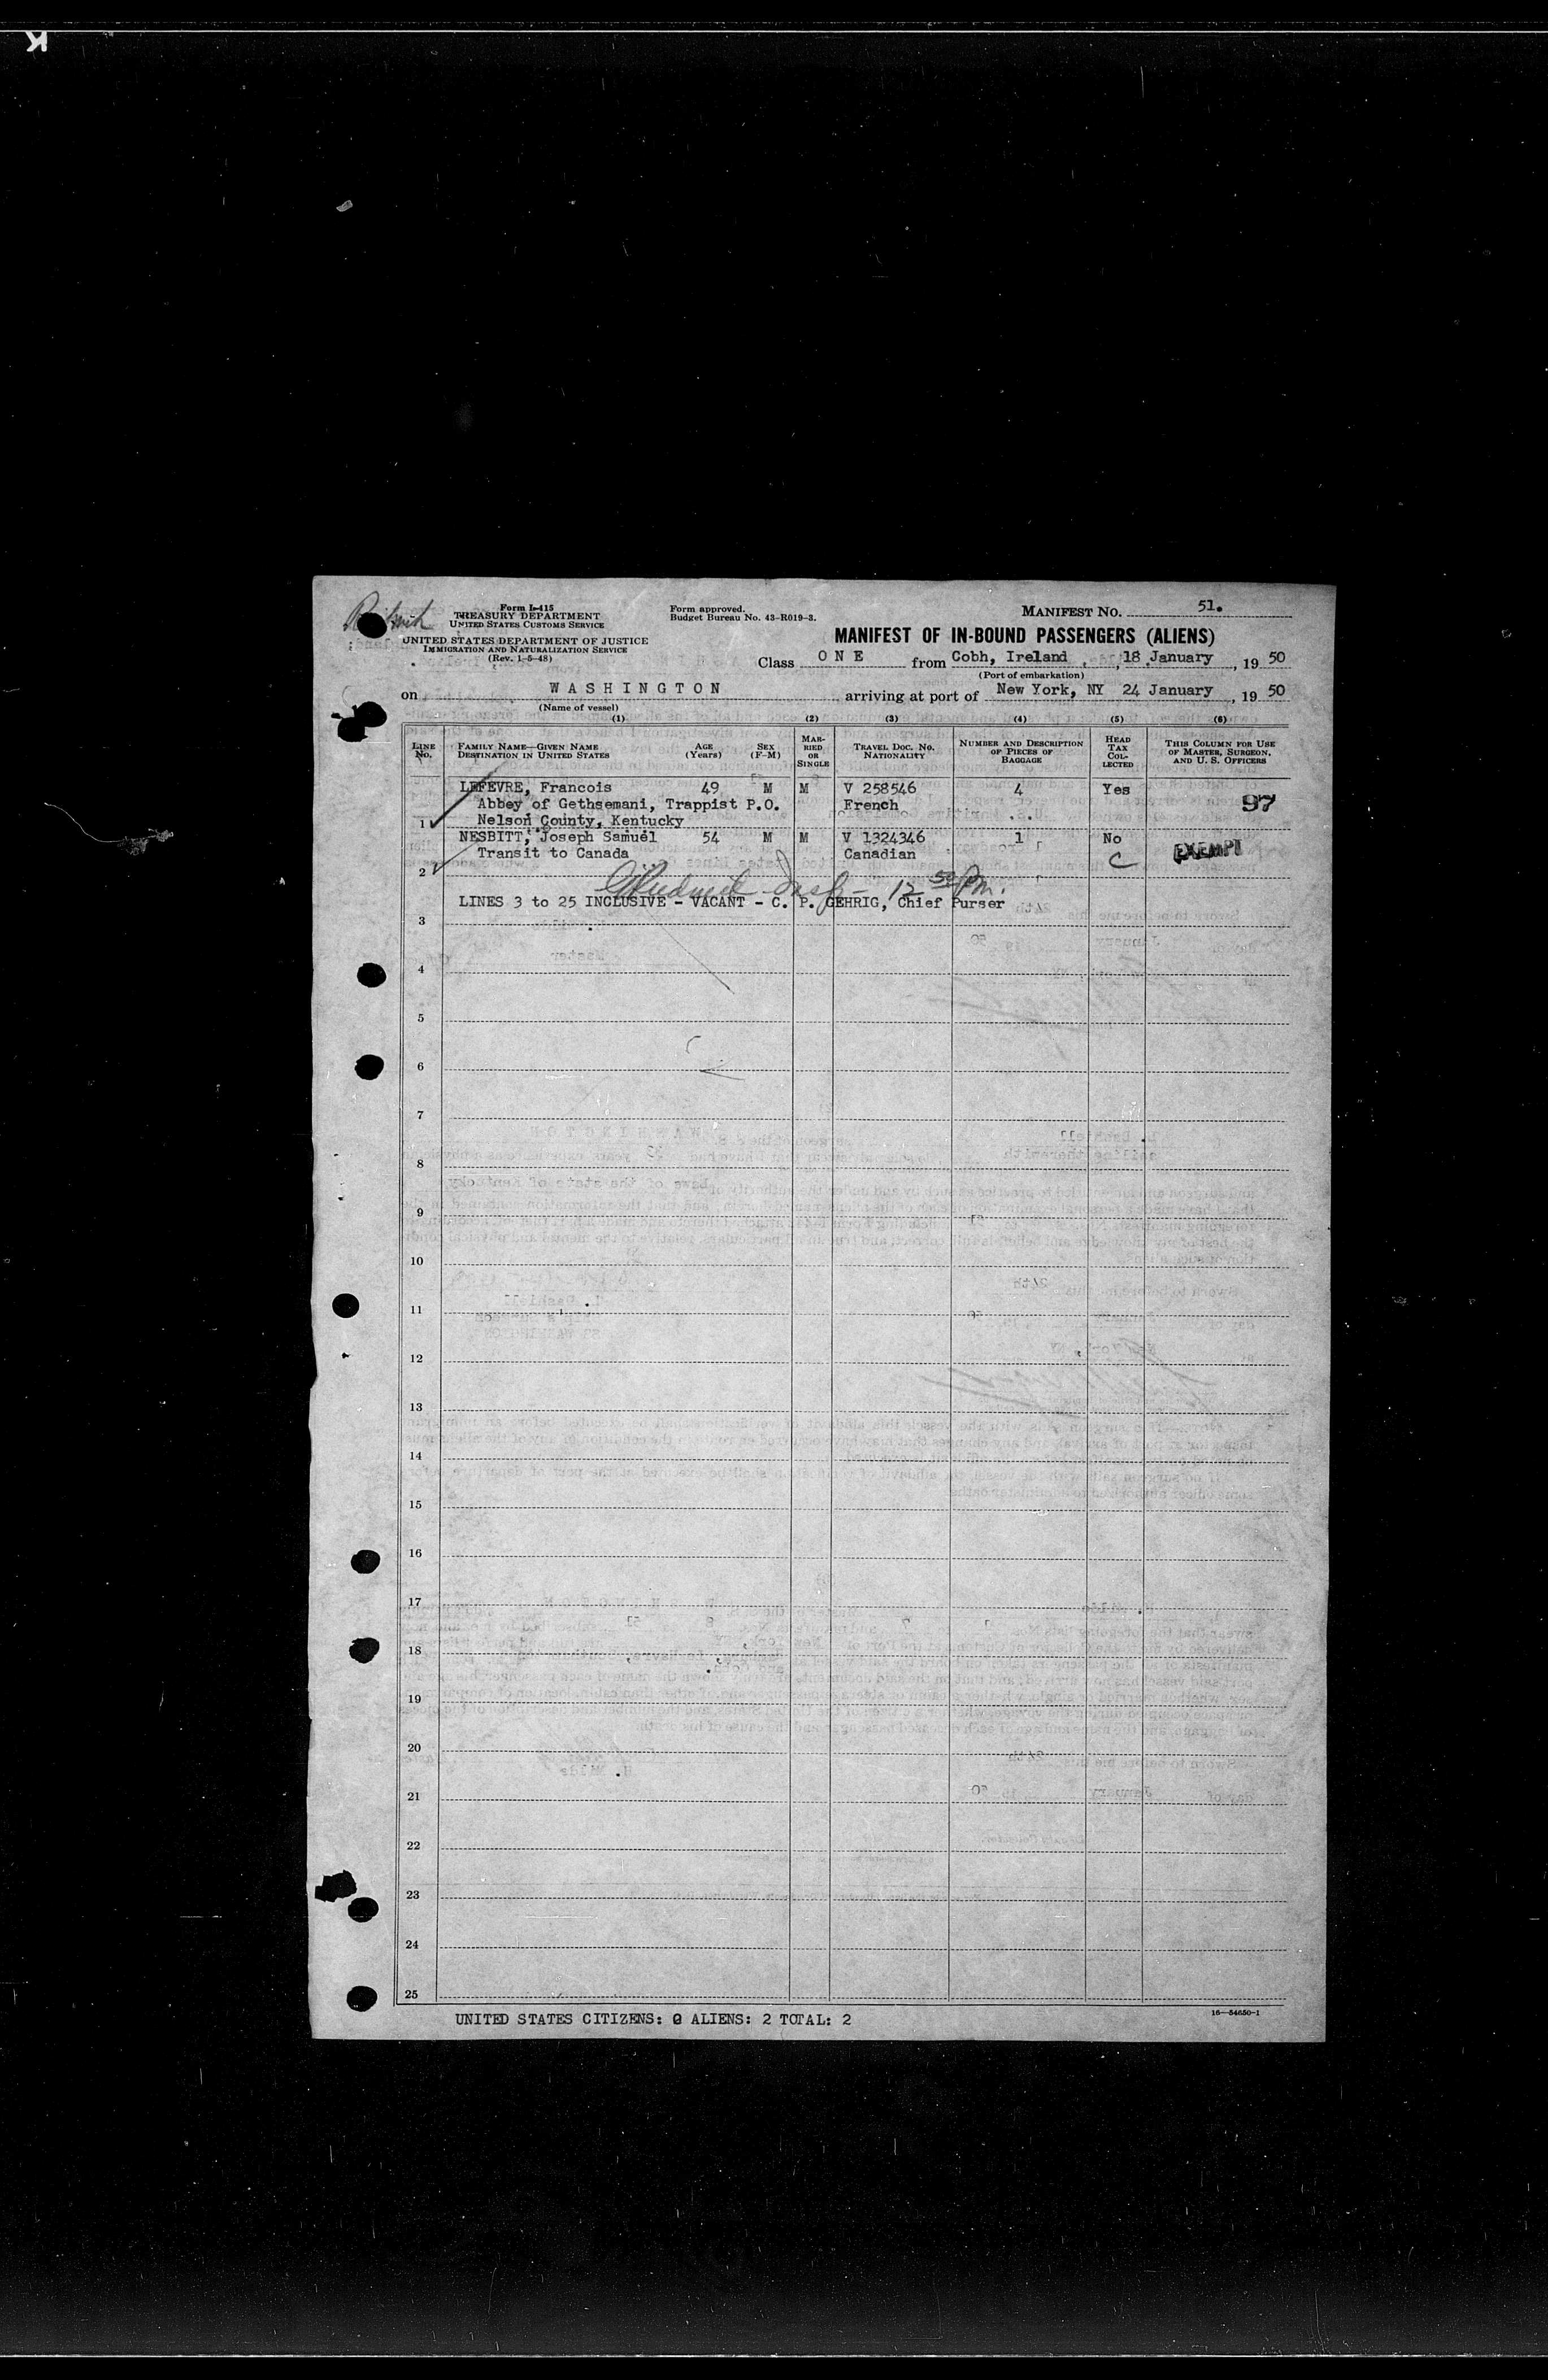 K
Form I-415
TREASURY DEPARTMENT
UNITED STATES CUSTOMS SERVICE
UNITED STATES DEPARTMENT OF JUSTICE
IMMIGRATION AND NATURALIZATION SERVICE
(Rev. 1-5-48)
Form approved.
Budget Bureau No. 43-R019-3.
MANIFEST NO. 51.
MANIFEST OF IN-BOUND PASSENGERS (ALIENS)
Class O N E from Cobh, Ireland, 18 January, 19 50
(Port of embarkation)
on W A S H I N G T O N arriving at port of New York, NY 24 January, 19 50
(Name of vessel)
(1) (2) (3) (4) (5) (6)
LINE NO. FAMILY NAME—GIVEN NAME DESTINATION IN UNITED STATES AGE (Years) SEX (F-M) MARRIED OR SINGLE TRAVEL DOC. NO. NATIONALITY NUMBER AND DESCRIPTION OF PIECES OF BAGGAGE HEAD TAX COLLECTED THIS COLUMN FOR USE OF MASTER, SURGEON, AND U. S. OFFICERS
LEFEVRE, Francois 49 M M V 258546 4 Yes
Abbey of Gethsemani, Trappist P.O. French 97
1 Nelson County, Kentucky
NESBITT, Joseph Samuel 54 M M V 1324346 1 No
Transit to Canada Canadian C EXEMPT
2
12 50 Pm.
LINES 3 to 25 INCLUSIVE - VACANT - C. P. GEHRIG, Chief Purser
3
4
5
6
7
8
9
10
11
12
13
14
15
16
17
18
19
20
21
22
23
24
25
UNITED STATES CITIZENS: 0 ALIENS: 2 TOTAL: 2
16—54650-1